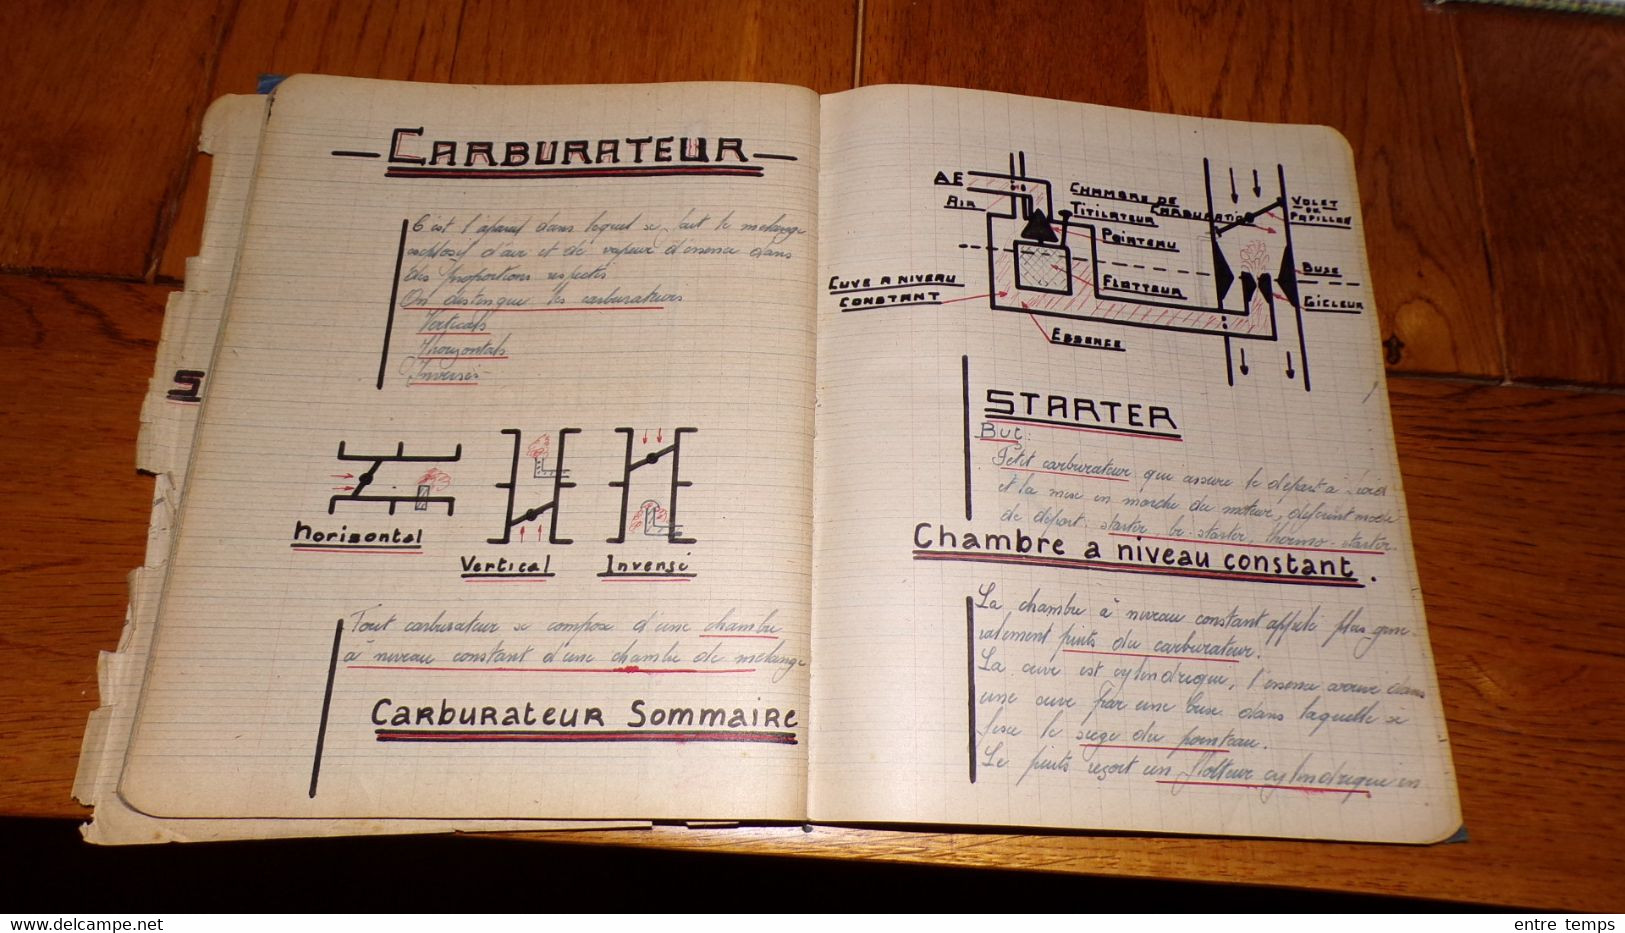 CARBURATEUR
C'est l'apareil dans lequel se fait le melange
explosif d'air et de vapeur d'essence dans
des proportions respectés
On distingue les carburateurs
Verticals
Horizontals
Inversés
horisontal
Vertical
Inversé
Tout carburateur se compose d'une chambre
à niveau constant d'une chambre de melange
Carburateur Sommaire
S
AE
AIR
CHAMBRE DE
CARBURATION
TITILATEUR
POINTEAU
VOLET
OU
PAPILLON
CUVE A NIVEAU
CONSTANT
FLATTEUR
BUSE
GICLEUR
ESSENCE
STARTER
BUT:
Petit carburateur qui assure le départ à froid
et la mise en marche du moteur, different mode
de départ. starter, bi-starter, thermo-starter.
Chambre a niveau constant.
La chambre à niveau constant appele plus gene-
ralement puits du carburateur.
La cuve est cylindrique, l'essence arrive dans
une cuve par une buse dans laquelle se
fixe le siege du pointeau.
Le puits reçoit un flotteur cylindrique en
Delcampe.net
entre temps